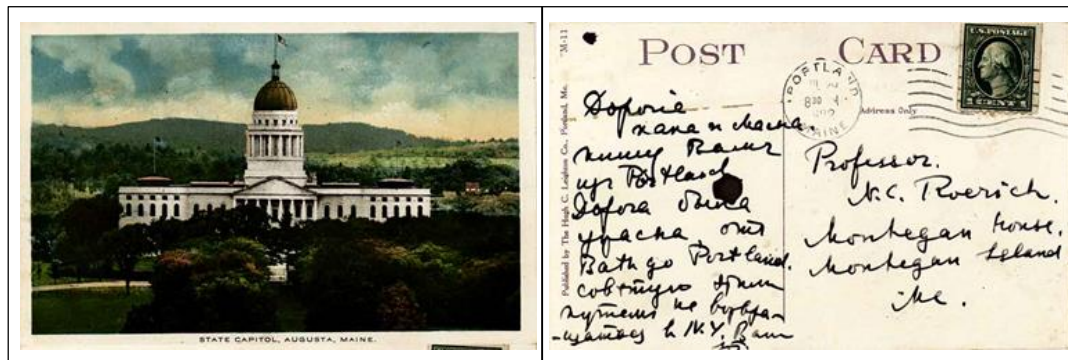 STATE CAPITOL, AUGUSTA, MAINE.
"M-11
Published by The Hugh C. Leighton Co., Portland, Me.
POST CARD
PORTLAND
830
MAINE
U.S. POSTAGE
1 CENT 1
Address Only
Дорогие
папа и мама
пишу Вамъ
изъ Portland
Дорога была
ужасна отъ
Bath до Portland.
совѣтую этимъ
путемъ не возвра-
-щаться в N.Y. Ваш
Professor.
N.C. Roerich.
Monhegan House.
Monhegan Island
Me.